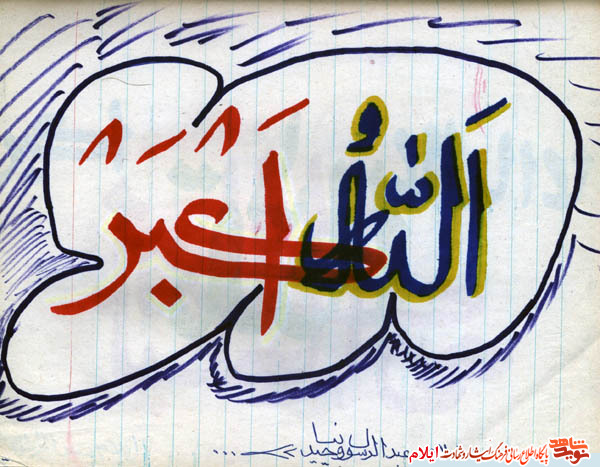 اَللّٰهُ اَکْبَرْ
عبدالرسول وحیدی نیا
نوید شاهد
پایگاه اطلاع رسانی فرهنگ ایثار و شهادت ایلام